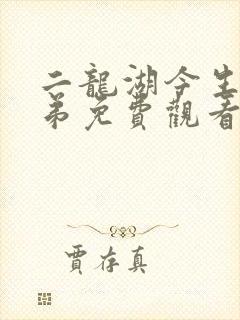 二龍湖今生
弟免費觀看
賈存真